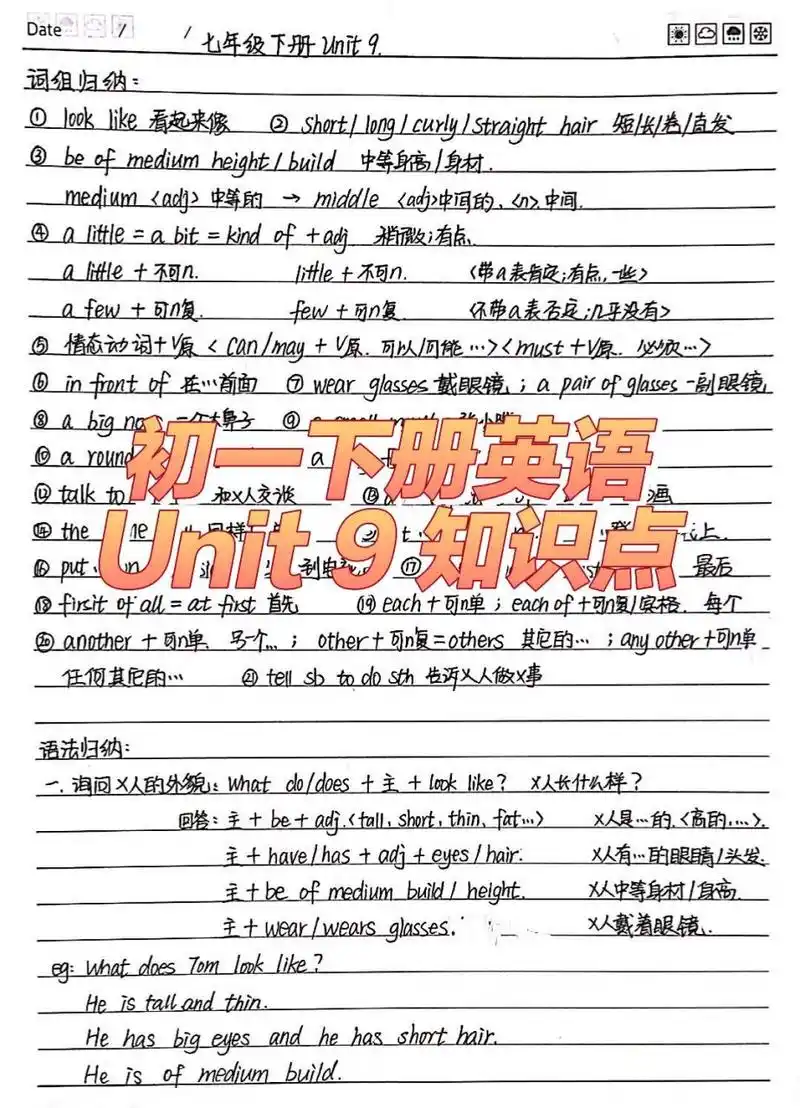 Date / /
七年级下册 Unit 9.
词组归纳:
① look like 看起来像 ② short/long/curly/straight hair 短/长/卷/直发
③ be of medium height/build 中等身高/身材.
medium <adj> 中等的 → middle <adj>中间的、<n>.中间.
④ a little = a bit = kind of + adj 稍微;有点
a little + 不可n. little + 不可n. <带a表肯定;有点,一些>
a few + 可n复. few + 可n复 <不带a表否定;几乎没有>
⑤ 情态动词+V原 < can/may + V原. 可以/可能…><must+V原. 必须…>
⑥ in front of 在…前面 ⑦ wear glasses 戴眼镜; a pair of glasses 一副眼镜
⑧ a big 鼻子 ⑨
⑩ a round a
⑫ talk to 和X人交谈 ⑬ 画
⑭ the 上.
⑯ put ⑰ 最后
⑱ firsit of all = at first 首先 ⑲ each+可n单; each of +可n复/宾格. 每个
⑳ another + 可n单. 另一个…; other+可n复=others 其它的…; any other+可n单
任何其它的… ㉑ tell sb to do sth 告诉X人做X事
初一下册英语
Unit 9 知识点
语法归纳:
一. 询问X人的外貌: What do/does + 主 + look like? X人长什么样?
回答: 主 + be + adj.<tall, short, thin, fat…> X人是…的.<高的,…>.
主 + have/has + adj + eyes/hair. X人有…的眼睛/头发
主 + be of medium build/height. X人中等身材/身高.
主 + wear/wears glasses. X人戴着眼镜.
eg: What does Tom look like?
He is tall and thin.
He has big eyes and he has short hair.
He is of medium build.